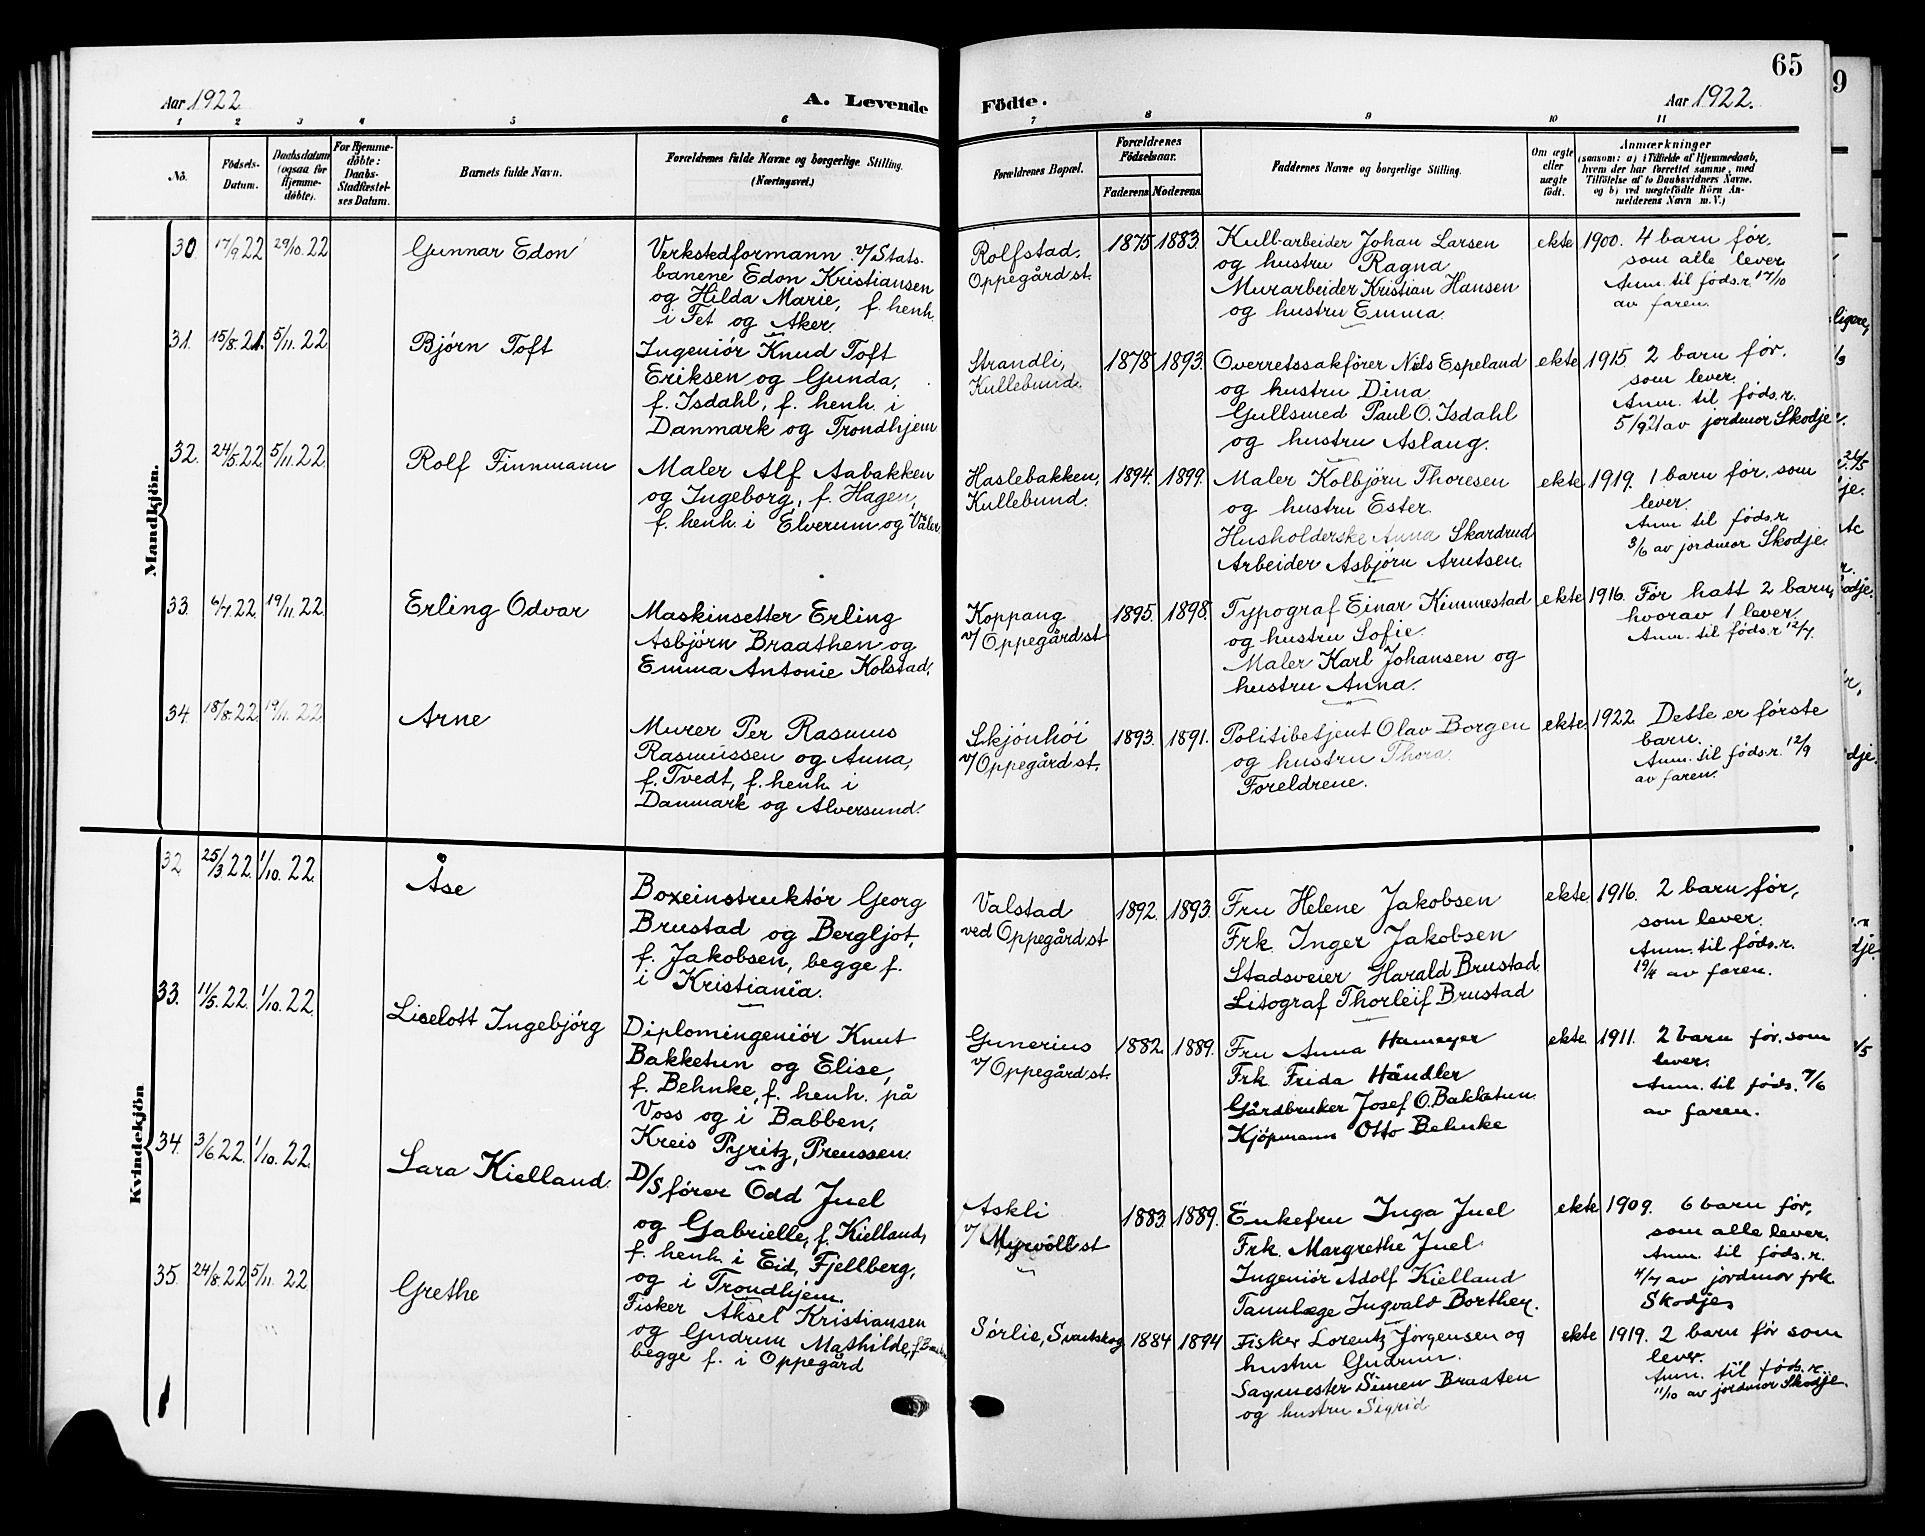 65
Aar 1922.
A. Levende Födte.
Aar 1922.
1 2 3 4 5 6 7 8 9 10 11
No.
Födsels-
Datum.
Daabsdatum
(ogsaa for
Hjemme-
döbte).
For Hjemme-
döbte:
Daabs-
Stadfæstel-
ses Datum.
Barnets fulde Navn.
Forældrenes fulde Navne og borgerlige Stilling.
(Næringsvei.)
Forældrenes Bopæl.
Forældrenes
Födselsaar.
Faderens.
Moderens.
Faddernes Navne og borgerlige Stilling.
Om ægte
eller
uægte
födt.
Anmærkninger
(saasom: a) i Tilfælde af Hjemmedaab,
hvem der har forrettet samme, med
Tilföielse af to Daabsvidners Navne,
og b) ved uægtefödte Börn An-
melderens Navn m. V.)
Mandkjön.
30 17/9 22 29/10 22
Gunnar Edon
Verkstedformann v/Stats-
banene Edon Kristiansen
og Hilda Marie, f. henh.
i Fet og Aker.
Rolfstad,
Oppegård st.
1875 1883.
Kullarbeider Johan Larsen
og hustru Ragna
Murarbeider Kristian Hansen
og hustru Emma.
ekte
1900. 4 barn før,
som alle lever.
Anm. til føds.r. 17/10
av faren.
31. 15/8. 21. 5/11. 22
Bjørn Toft
Ingeniör Knud Toft
Eriksen og Gunda,
f. Isdahl, f. henh. i
Danmark og Trondhjem
Strandli,
Kullebund.
1878. 1893.
Overretssakfører Nils Espeland
og hustru Dina
Gullsmed Paul O. Isdahl
og hustru Aslaug.
ekte
1915. 2 barn før.
som lever.
Anm. til føds.r.
5/9 21 av jordmor Skodje.
32. 24/5. 22 5/11. 22.
Rolf Finnmann
Maler Alf Aabakken
og Ingeborg, f. Hagen,
f. henh. i Elverum og Våler.
Haslebakken,
Kullebund.
1894. 1899.
Maler Kolbjørn Thoresen
og hustru Ester.
Husholderske Anna Skardrud
Arbeider Asbjørn Arntsen.
ekte
1919. 1 barn før, som
lever.
Anm. til føds.r.
3/6 av jordmor Skodje.
33. 6/7 22. 19/11 22.
Erling Odvar
Maskinsetter Erling
Asbjörn Braathen og
Emma Antonie Kolstad.
Koppang
v/Oppegård st
1895. 1898.
Typograf Einar Kimmestad
og hustru Sofie.
Maler Karl Johansen og
hustru Anna.
ekte
1916. Før hatt 2 barn,
hvorav 1 lever.
Anm. til føds.r 12/7.
34. 18/8. 22. 19/11. 22
Arne
Murer Per Rasmus
Rasmussen og Anna,
f. Tvedt, f. henh. i
Danmark og Alversund.
Skjönhöi
v/Oppegård st.
1893. 1891.
Politibetjent Olav Borgen
og hustru Thora.
Foreldrene.
ekte.
1922. Dette er første
barn.
Anm. til føds.r. 12/9
av faren.
Kvindekjön
32 25/3 22. 1/10. 22.
Åse
Boxeinstruktör Georg
Brustad og Bergljot,
f. Jakobsen, begge f.
i Kristiania.
Valstad
ved Oppegård st
1892. 1893.
Fru Helene Jakobsen
Frk. Inger Jakobsen
Stadsveier Harald Brustad
Litograf Thorleif Brustad
ekte
1916. 2 barn før,
som lever.
Anm. til føds.r.
19/4 av faren.
33. 11/5. 22. 1/10. 22
Liselott Ingebjörg
Diplomingeniör Knut
Bakketun og Elise,
f. Behnke, f. henh. på
Voss og i Babben,
Kreis Pyritz, Preussen.
Gunerius
v/Oppegård st.
1882. 1889.
Fru Anna Hameyer
Frk. Frida Händler
Gårdbruker Josef O. Bakketun.
Kjöpmann Otto Behnke
ekte.
1911. 2 barn før, som
lever.
Anm. til føds. 7/6
av faren.
34. 3/6 22. 1/10. 22.
Sara Kielland.
D/S förer Odd Juel
og Gabrielle, f. Kielland,
f. henh. i Eid, Fjellberg,
og i Trondhjem.
Askli
v/Myrvoll st
1883. 1889.
Enkefru Inga Juel
Frk. Margrethe Juel
Ingeniör Adolf Kielland
Tannlæge Ingvald Borthen.
ekte
1909. 6 barn før,
som alle lever.
Anm. til føds.r.
4/7 av jordmor frk.
Skodje,
35. 24/8. 22 5/11. 22
Grethe
Fisker Aksel Kristiansen
og Gudrun Mathilde,
begge f. i Oppegård
Sörlie, Svartskog
1884 1894
Fisker Lorentz Jörgensen og
hustru Gudrun.
Sagmester Simen Braaten
og hustru Sigrid
ekte
1919. 2 barn før som
lever.
Anm. til føds.r.
11/10 av jordmor Skodje.